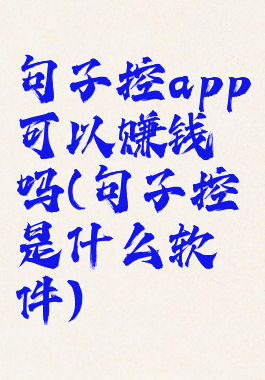 句子控app
可以赚钱
吗(句子控
是什么软
件)